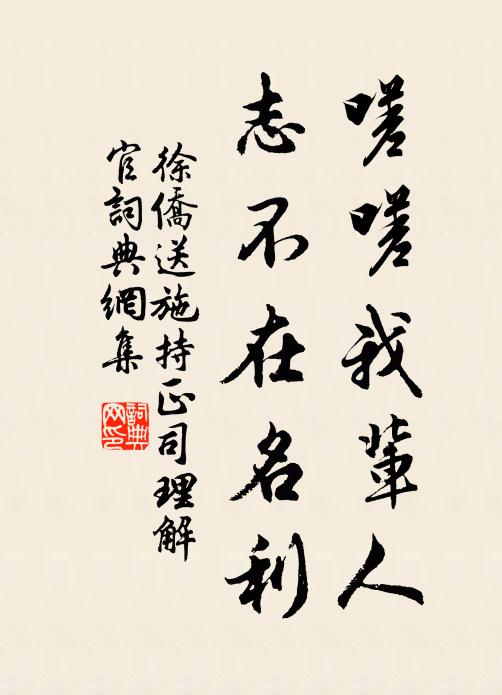 嗟嗟我輩人
志不在名利
徐僑送施持正司理解
官詞典網集
詞典
网印